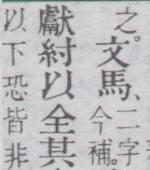 之。文馬、二字
今補。
獻紂以全其
以下恐皆非